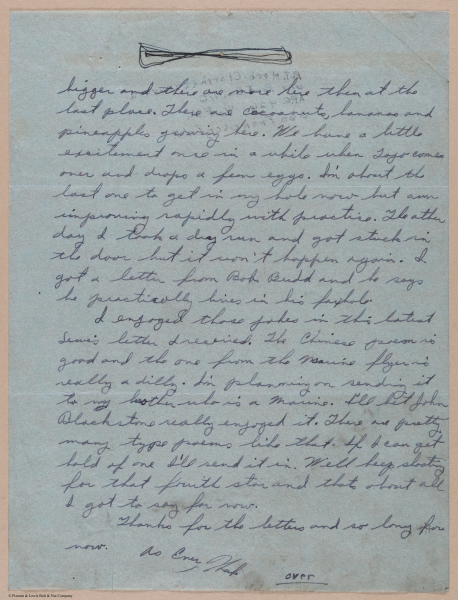 bigger and there are more here then at the
last place. There are cocoanuts, bananas and
pineapples growing here. We have a little
excitement once in a while when Tojo comes
over and drops a few eggs. I'm about the
last one to get in my hole now but am
improving rapidly with practice. The other
day I took a dry run and got stuck in
the door but it won't happen again. I
got a letter from Bob Budd and he says
he practically lives in his foxhole
I enjoyed those jokes in this latest
letter I received. The Chinese poem is
good and the one from the Marine flyer is
really a dilly. I'm planning on sending it
to my brother who is a Marine. I'll bet John
Blackstone really enjoyed it. There are pretty
many type poems like that. If I can get
hold of one I'll send it in. We'll keep shooting
for that fourth star and thats about all
I got to say for now.
Thanks for the letters and so long for
now.
As Ever
over
© Planters & Lewis Bolt & Nut Company